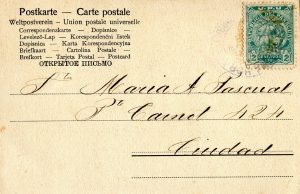 Postkarte - Carte postale
Weltpostverein - Union postale universelle
Correspondenzkarte - Dopisnice -
Levelező-Lap - Korespondenční lístek
Dopisnica - Karta Korespondencyjna
Briefkaart - Cartolina Postale -
Brefkort - Tarjeta Postal - Postcard
ОТКРЫТОЕ ПИСЬМО
Maria A. Pascual
Canel 424
Ciudad